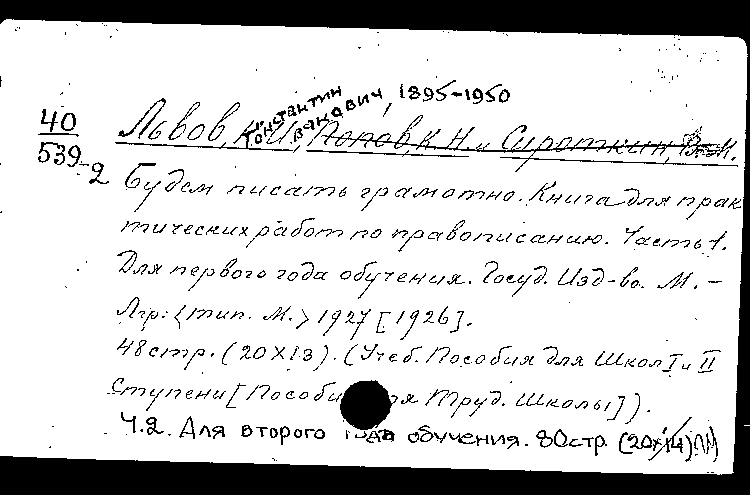 Константин
Иванович, 1895-1950
40
539-2
Львов, К. И., Попов, К. Н. и Сироткин, В. М.
Будем писать грамотно. Книга для прак
тических работ по правописанию. Часть 1.
Для первого года обучения. Госуд. Изд-во. М. –
Лгр: <тип. М.> 1927 [1926].
48 стр. (20X13). (Учеб. Пособия для Школ I и II
Ступени [Пособия для Труд. Школы]).
Ч.2. Для второго года обучения. 80стр (20X14).